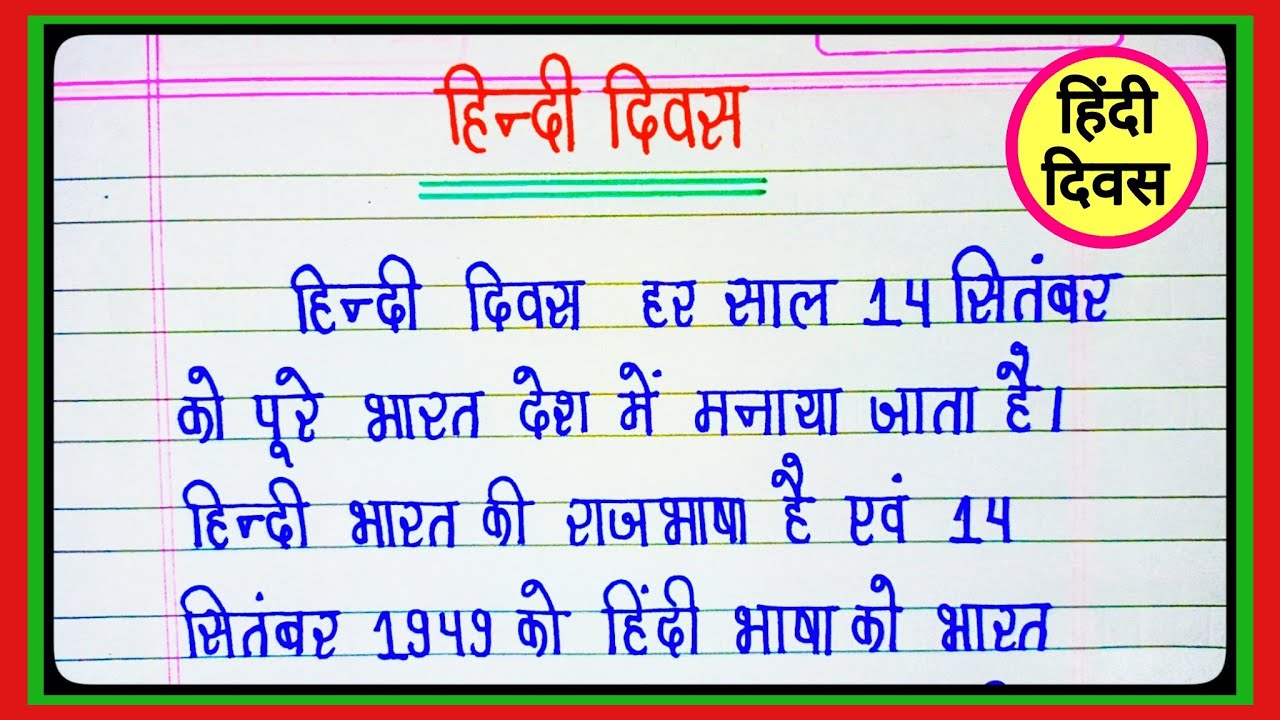 हिन्दी दिवस
हिंदी
दिवस
हिन्दी दिवस हर साल 14 सितंबर
को पूरे भारत देश में मनाया जाता है।
हिन्दी भारत की राजभाषा है एवं 14
सितंबर 1949 को हिंदी भाषा को भारत